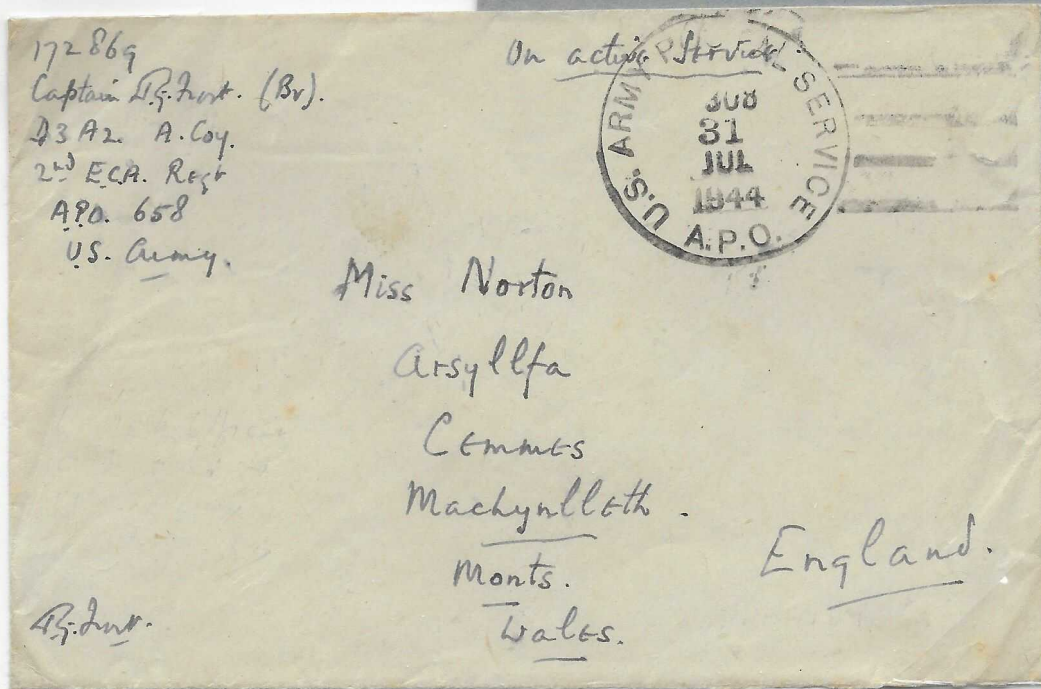 172869
Captain Frost. (Br).
D3 A2. A. Coy.
2nd E.C.A. Regt
A.P.O. 658
U.S. Army.
On active Service
U.S. ARMY POSTAL SERVICE
31
JUL
1944
A.P.O.
Miss Norton
Arsyllfa
Cemmes
Machynlleth.
Monts.
Wales.
England.
Frost.